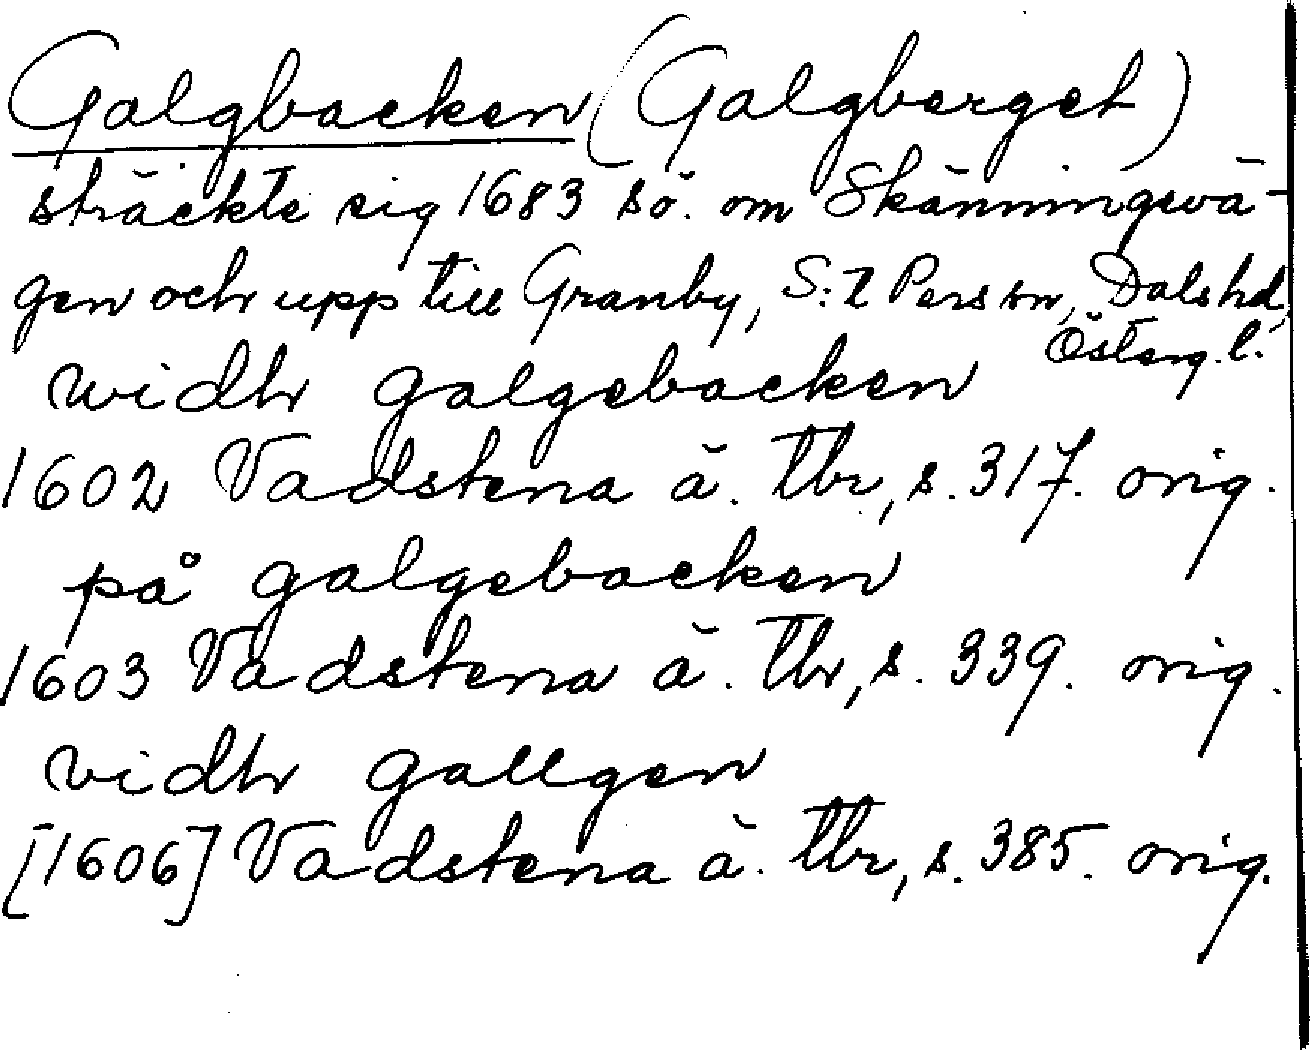 Galgbacken (Galgberget)
sträckte sig 1683 sö. om Skänningevä-
gen och upp till Granby, S:t Persson, Dalshd,
Österg. l.
widh galgebacken
1602 Vadstena ä. tbr, s. 317. orig.
på galgebacken
1603 Vadstena ä. tbr, s. 339. orig.
vidh gallgen
[1606] Vadstena ä. tbr, s. 385. orig.